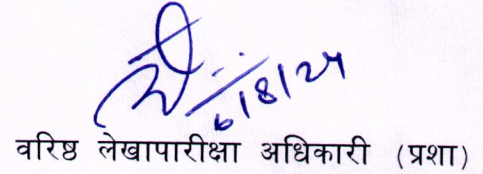 6/8/24
वरिष्ठ लेखापारीक्षा अधिकारी (प्रशा)